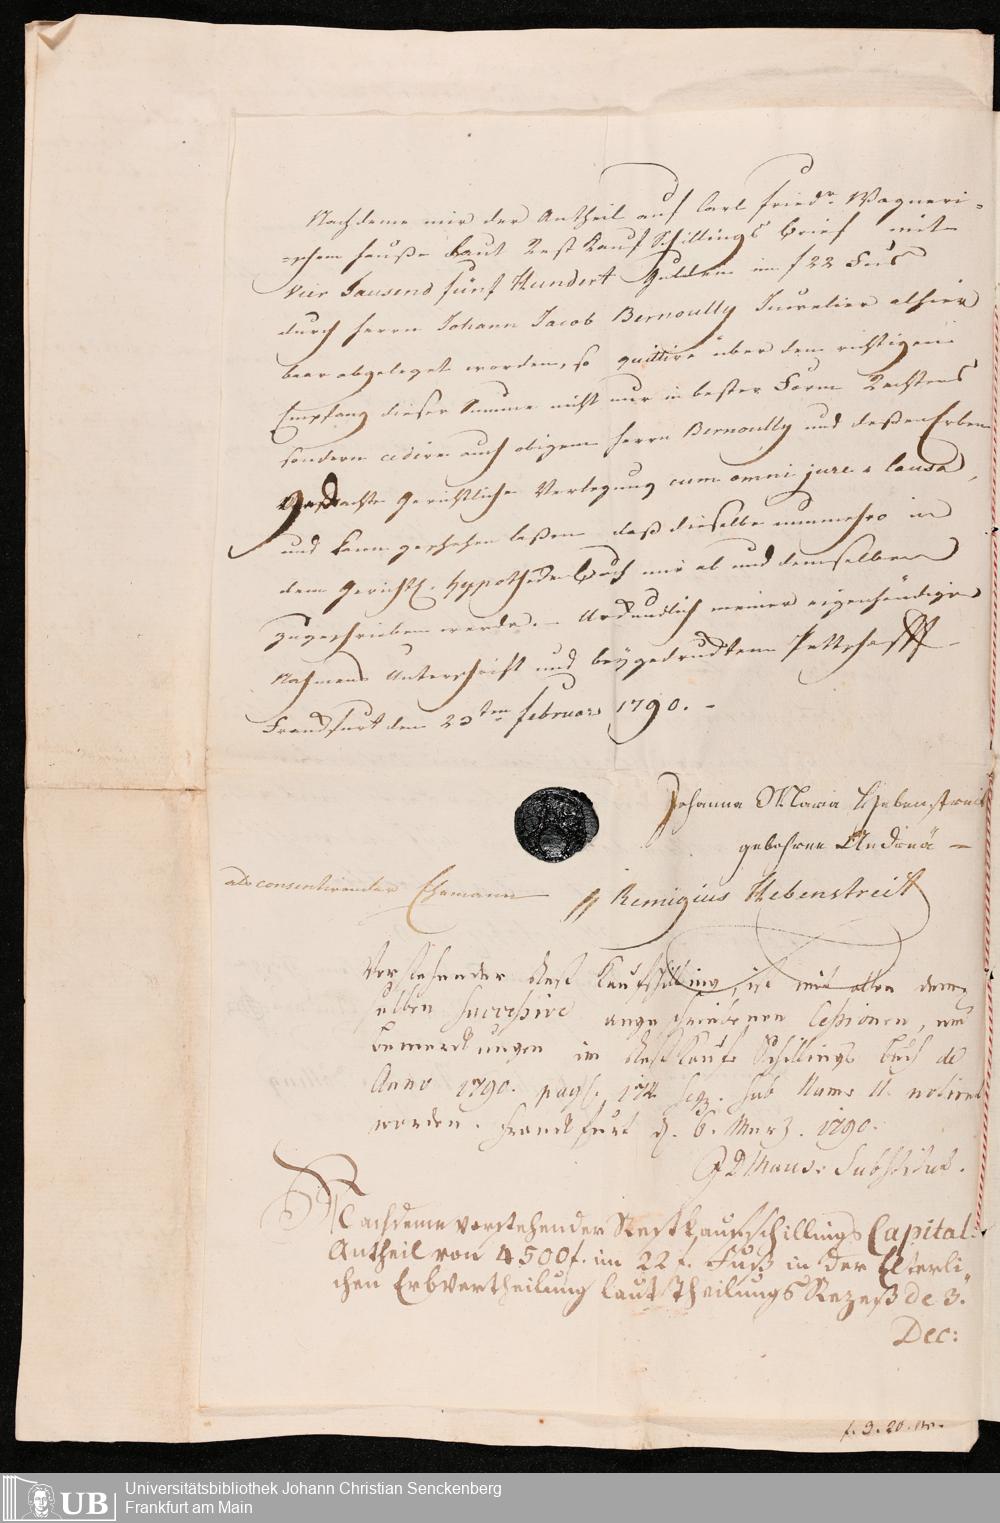 Nachdeme mir der Antheil auf Carl Friedr. Wagneri=
=schem Hauße Laut Rest Kauf Schillings Brief mit
Vier Tausend fünf Hundert Gulden im f 22 Fus
durch Herrn Johann Jacob Bernoully Juwelier alhier
baar abgeleget worden, so quittire über den richtigen
Empfang dieser Summe nicht nur in bester Form Rechtens
sondern cedire auch obigem Herrn Bernoully und deßen Erben
Gedachte Gerichtliche Verlegung cum omni jure & causa,
und kann geschehen laßen daß dieselbe nunmehro in
dem Gerichtl. Hypotheden Buch mir ab und demselben
zugeschrieben werde. – Urdundlich meiner eigenhändigen
Nahmens Unterschrift und beÿgedrudtem Pettschafft –
Frandfurt den 23ten Februar 1790. –
Johanna Maria Hebenstreit
gebohrne Andreä –
als consentirender Ehemann Remigius Hebenstreit
Vorstehender Rest Kaufschilling, ist mit allen dem=
selben Successive angeschriebenen Cessionen, und
Bemerckungen im Rest Kauf Schillings Buch de
Anno 1790. pag. 174. seq. sub Num: 11. notiret
worden. Franckfurt d. 6. Merz. 1790.
Substitut.
Nachdeme vorstehender Restkaufschillings Capital=
Antheil von 4500 f. im 22 f. Fuß in der Elterli=
chen Erbvertheilung laut Theilungs Rezeß de 3.
Dec:
f. 9. 20.
UB
Universitätsbibliothek Johann Christian Senckenberg
Frankfurt am Main